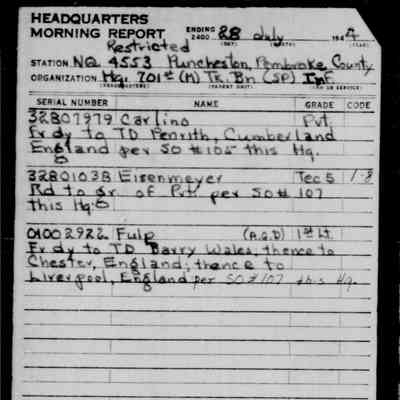 HEADQUARTERS
MORNING REPORT ENDING 2400 28 July 1944
Restricted (DAY) (MONTH) (YEAR)
STATION NQ 4553 Puncheston, Pembroke County
ORGANIZATION Hq. 701st (M) Tk. Bn (SP) Inf.
(HEADQUARTERS) (PARENT UNIT) (ARM OR SERVICE)
SERIAL NUMBER NAME GRADE CODE
32807979 Carlino Pvt
Fr dy to TD Penrith, Cumberland
England per SO #105 this Hq.
32801038 Eisenmeyer Tec 5
Rd to gr. of Pvt. per SO# 107
this Hq.
01002922 Fulp (A.G.D) 1st Lt.
Fr dy to TD Barry Wales, thence to
Chester, England; thence to
Liverpool, England per SO #107 this Hq.